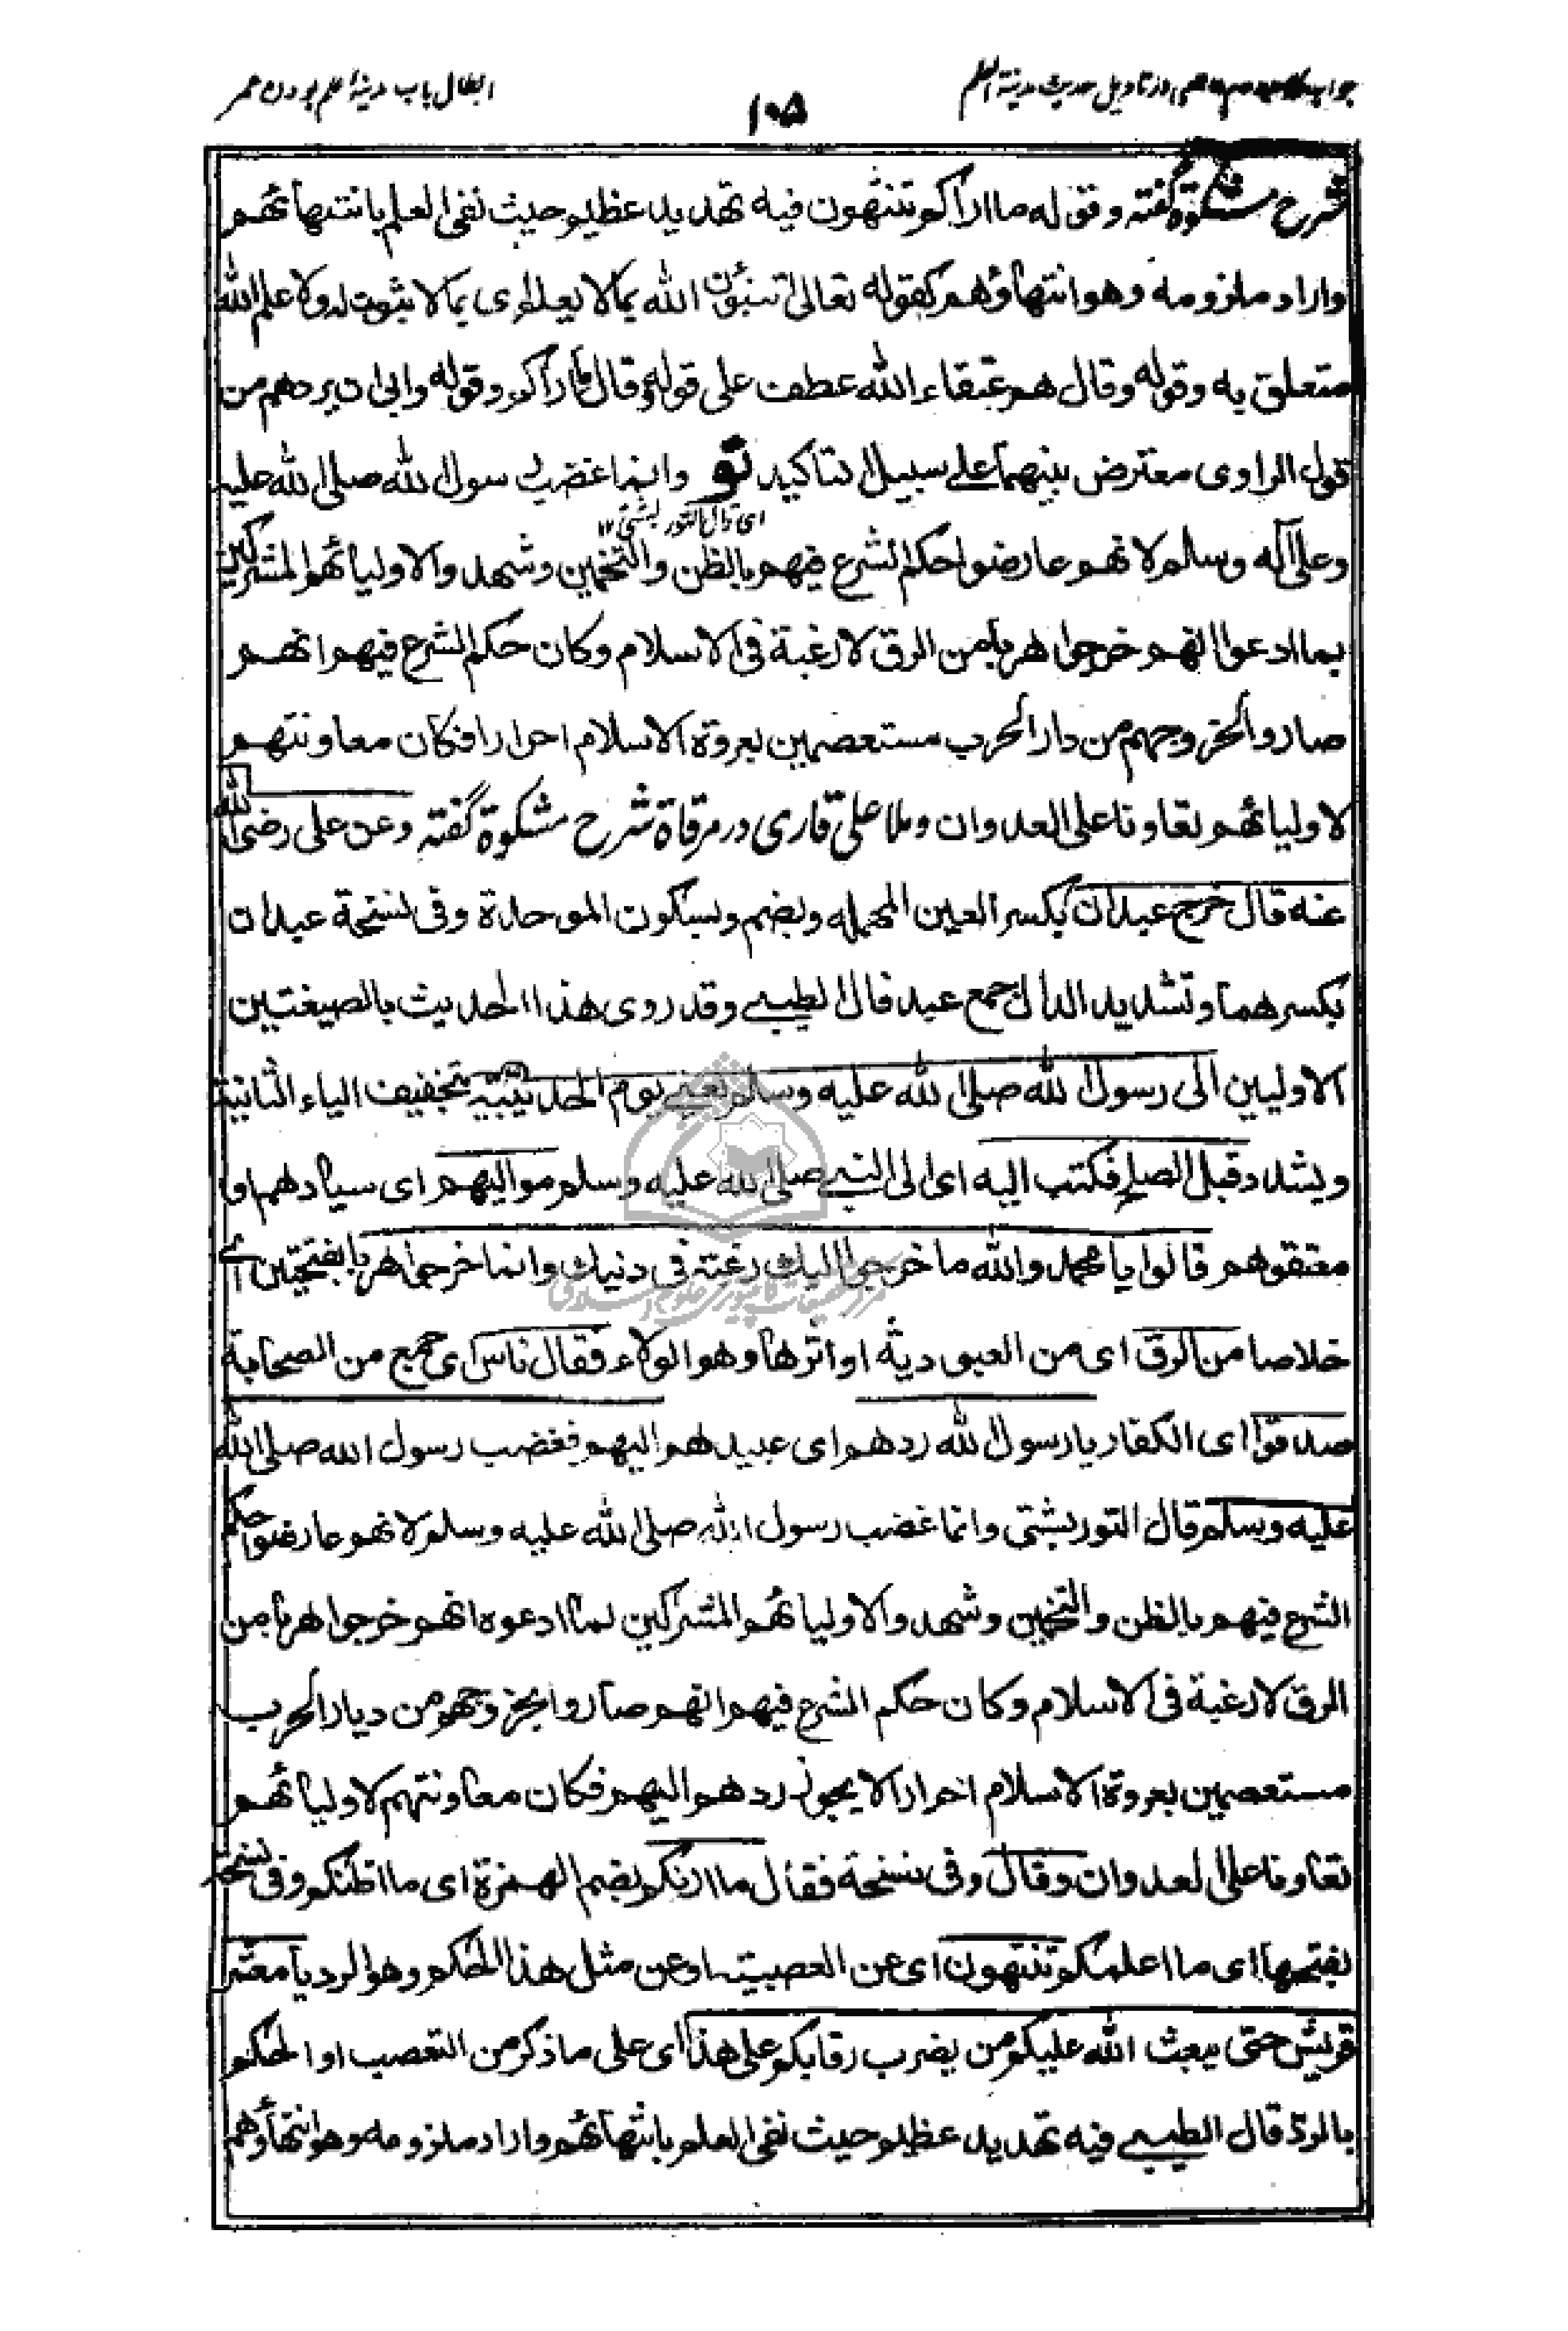 در تاویل حدیث مدینة العلم
١٠٥
ابطال باب مدینهٔ علم بودن عمر
شرح مشکوة گفته وقوله ما اراكم تنتهون فيه تهديد عظيم حيث نفى العلم بانتهائهم
واراد ملزومه وهو انتهاؤهم كقوله تعالى اتنبئون الله بما لا يعلم اى بما لا ثبوت له ولا علم الله
متعلق به وقوله وقال هم عتقاء الله عطف على قوله وقال ما اراكم وقوله وابى ان يردهم من
قول الراوى معترض بينهما على سبيل التاكيد تو وانما غضب رسول الله صلى الله عليه
اى قال التوربشتى ١٢
وعلى آله وسلم لانهم عارضوا حكم الشرع فيهم بالظن والتخمين وشهدوا لاوليائهم المشركين
بما ادعوا انهم خرجوا هربا من الرق لا رغبة فى الاسلام وكان حكم الشرع فيهم انهم
صاروا بخروجهم من دار الحرب مستعصمين بعروة الاسلام احرارا فكان معاونتهم
لاوليائهم تعاونا على العدوان وملا على قارى در مرقاة شرح مشكوة گفته وعن على رضى الله
عنه قال خرج عبدان بكسر العين المهمله وبضم وبسكون الموحدة وفى نسخة عبدان
بكسرهما وتشديد الدال جمع عبد قال الطيبى وقد روى هذا الحديث بالصيغتين
الاوليين الى رسول الله صلى الله عليه وسلم يعنى يوم الحديبيّة بتخفيف الياء الثانية
ويشدد قبل الصلح فكتب اليه اى الى النبى صلى الله عليه وسلم مواليهم اى سيادهم او
معتقوهم قالوا يا محمد والله ما خرجوا اليك رغبة فى دنيك وانما خرجوا هربا بفتحتين اے
خلاصا من الرق اى من العبودية او اثرها وهو الولاء فقال ناس اى جمع من الصحابة
صدقوا اى الكفار يا رسول الله ردهم اى عبيدهم اليهم فغضب رسول الله صلى الله
عليه وسلم قال التوربشتى وانما غضب رسول الله صلى الله عليه وسلم لانهم عارضوا حكم
الشرع فيهم بالظن والتخمين وشهدوا لاوليائهم المشركين لما ادعوه انهم خرجوا هربا من
الرق لا رغبة فى الاسلام وكان حكم الشرع فيهم انهم صاروا بخروجهم من ديار الحرب
مستعصمين بعروة الاسلام احرارا لا يجوز ردهم اليهم فكان معاونتهم لاوليائهم
تعاونا على العدوان وقال وفى نسخة فقال ما اريكم بضم الهمزة اى ما اظنكم وفى نسخة
بفتحها اى ما اعلمكم تنتهون اى عن العصبية او عن مثل هذا الحكم وهو الرد يا معشر
قريش حتى يبعث الله عليكم من يضرب رقابكم على هذا اى على ما ذكر من التعصب او الحكم
بالرد قال الطيبى فيه تهديد عظيم حيث نفى العلم بانتهائهم واراد ملزومه وهو انتهاؤهم